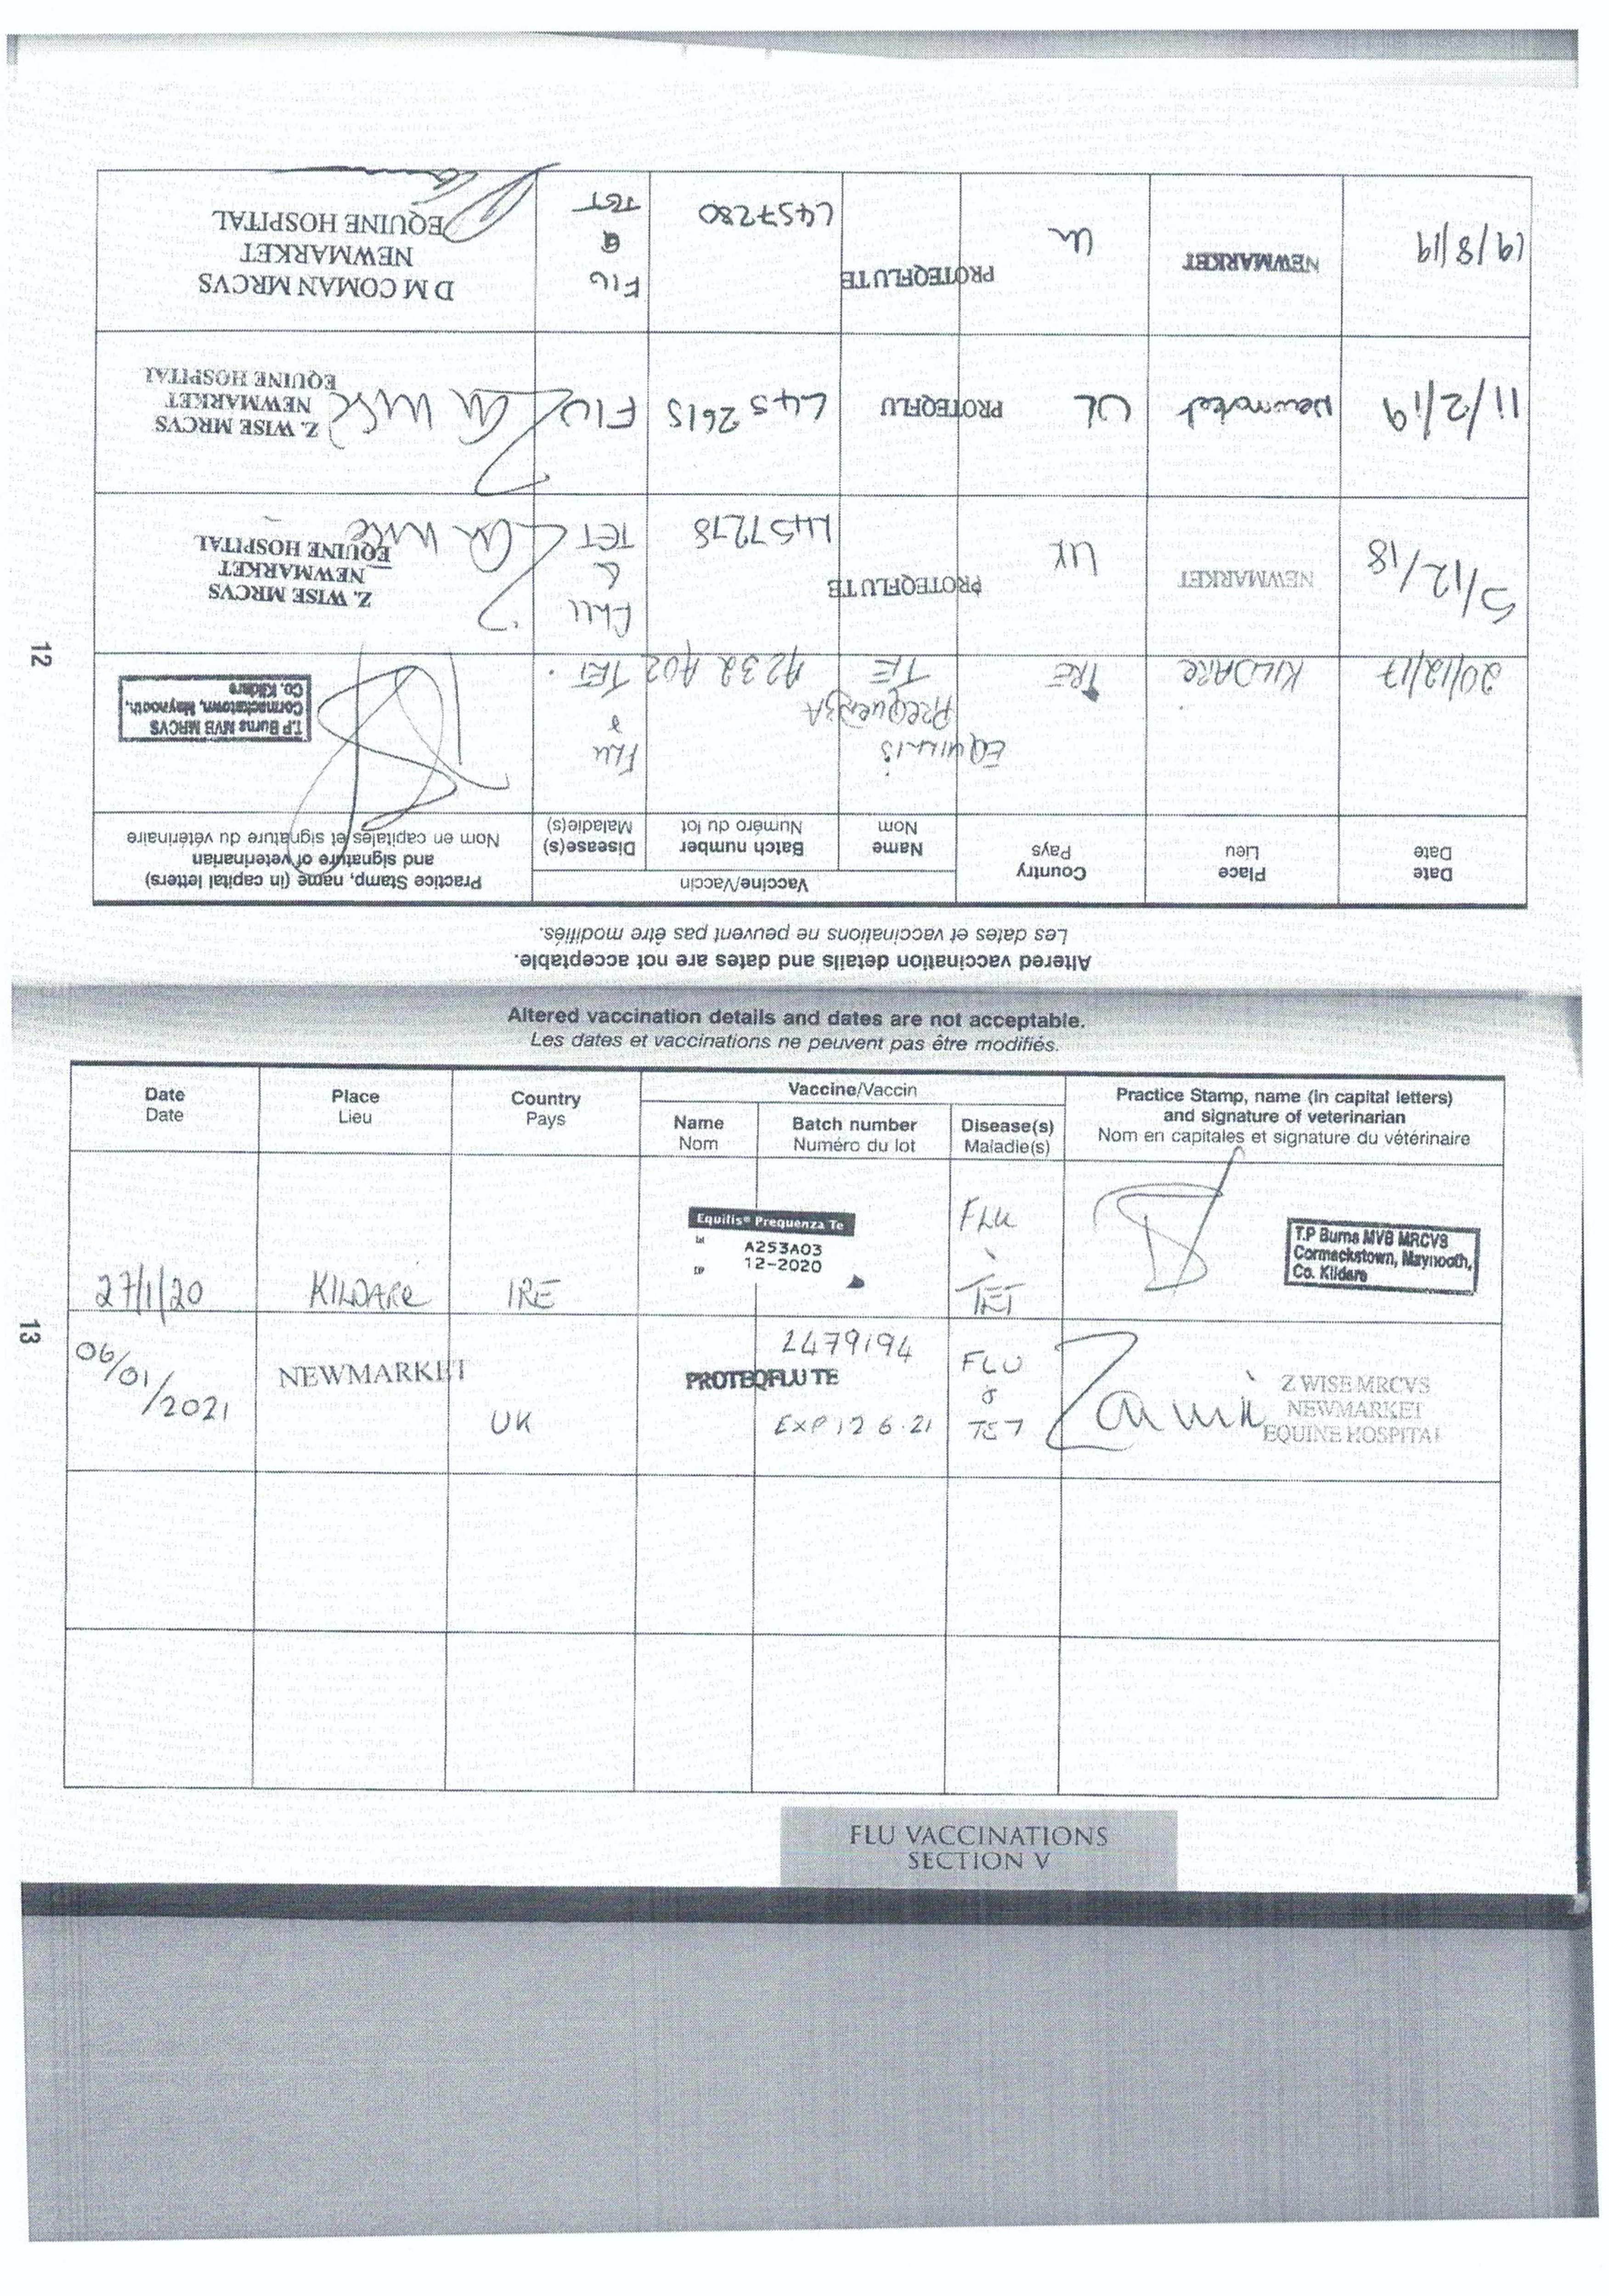 12
Altered vaccination details and dates are not acceptable.
Les dates et vaccinations ne peuvent pas être modifiés.
Date
Date
Place
Lieu
Country
Pays
Vaccine/Vaccin
Name
Nom
Batch number
Numéro du lot
Disease(s)
Maladie(s)
Practice Stamp, name (in capital letters)
and signature of veterinarian
Nom en capitales et signature du vétérinaire
20/12/17
KILDARE
IRE
EQUILIS
PREQUENZA
TE
A232A02
FLU
&
TET.
T.P Burns MVB MRCVS
Cormackstown, Maynooth,
Co. Kildare
5/12/18
NEWMARKET
UK
PROTEQFLUTE
L457278
FLU
&
TET
Z. WISE MRCVS
NEWMARKET
EQUINE HOSPITAL
11/2/19
Newmarket
UK
PROTEQFLU
L452615
FLU
Z. WISE MRCVS
NEWMARKET
EQUINE HOSPITAL
19/8/19
NEWMARKET
UK
PROTEQFLUTE
L457280
FLU
&
TET
D M COMAN MRCVS
NEWMARKET
EQUINE HOSPITAL
13
Altered vaccination details and dates are not acceptable.
Les dates et vaccinations ne peuvent pas être modifiés.
Date
Date
Place
Lieu
Country
Pays
Vaccine/Vaccin
Name
Nom
Batch number
Numéro du lot
Disease(s)
Maladie(s)
Practice Stamp, name (in capital letters)
and signature of veterinarian
Nom en capitales et signature du vétérinaire
27/1/20
KILDARE
IRE
Equilis® Prequenza Te
A253A03
12-2020
FLU
&
TET
T.P Burns MVB MRCVS
Cormackstown, Maynooth,
Co. Kildare
06/01/2021
NEWMARKET
UK
PROTEQFLUTE
L479194
EXP 12 6.21
FLU
&
TET
Z WISE MRCVS
NEWMARKET
EQUINE HOSPITAL
FLU VACCINATIONS
SECTION V